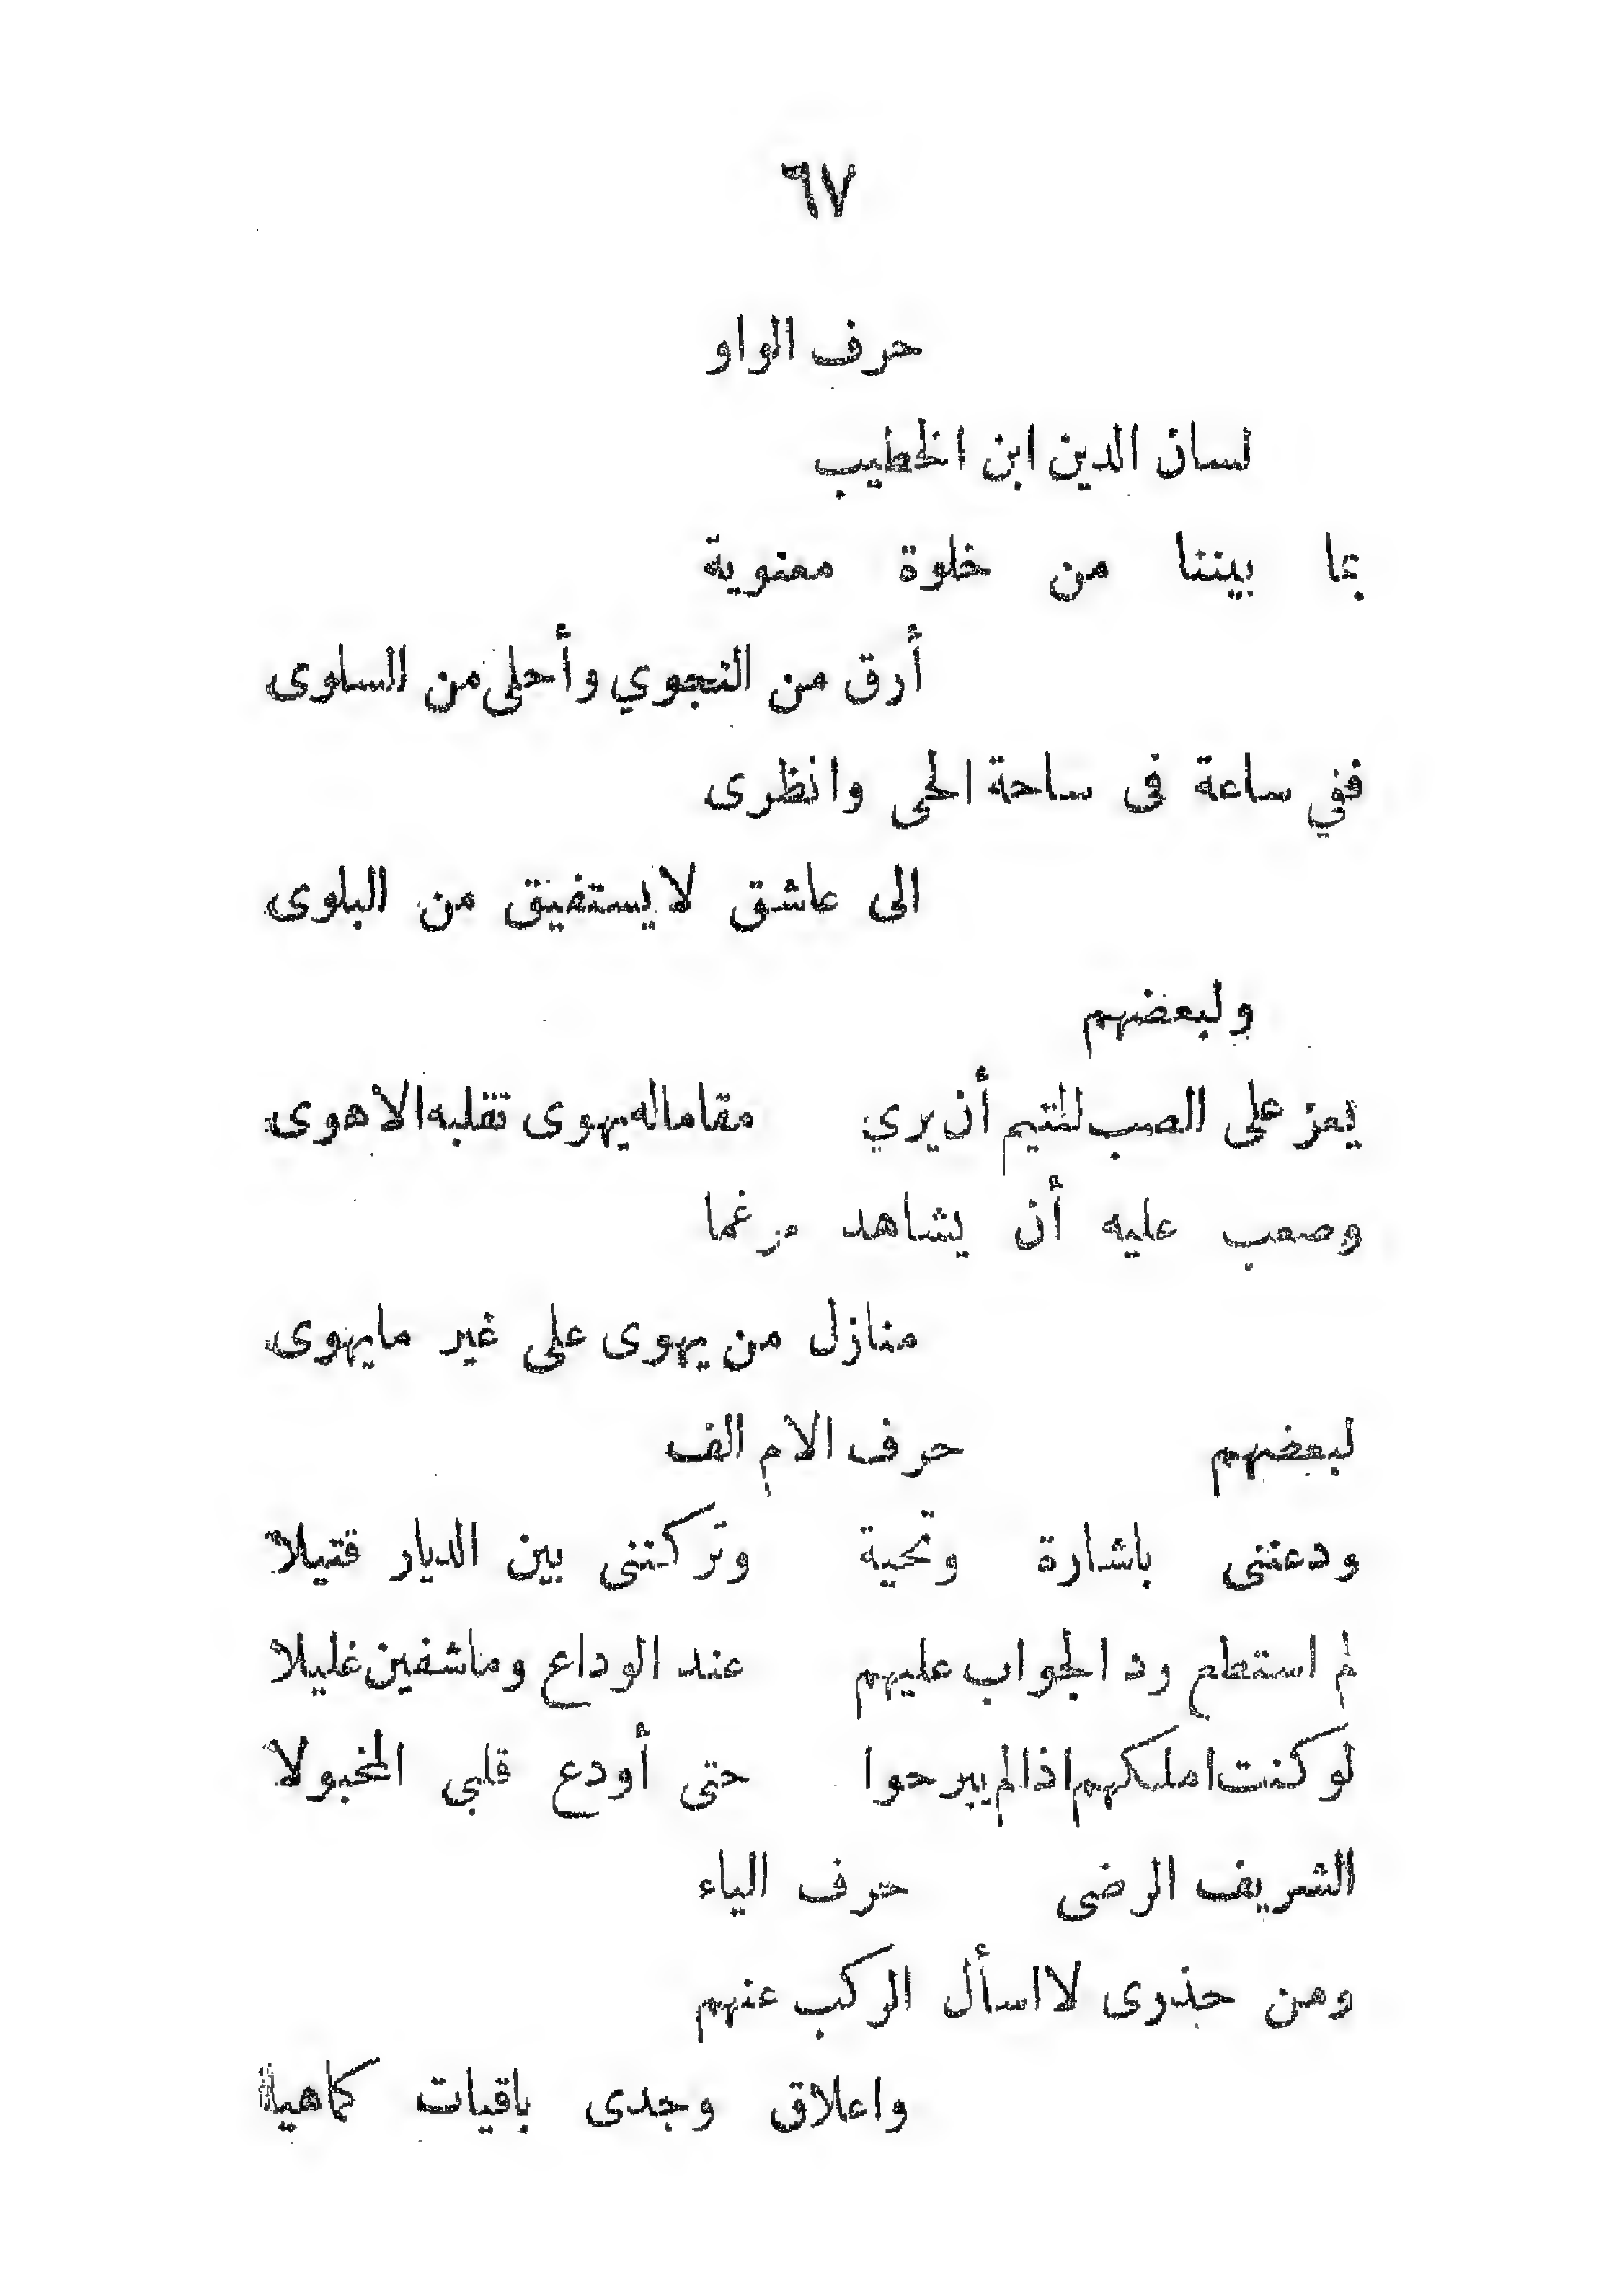 ٦٧
حرف الواو
لسان الدين ابن الخطيب
بما بيننا من خلوة معنوية
أرق من النجوي وأحلى من السلوى
ففي ساعة فى ساحة الحى وانظرى
الى عاشق لا يستفيق من البلوى
ولبعضهم
يعز على الصب المتيم أن يري مقاما له يهوى تقلبه الاهوى
وصعب عليه أن يشاهد مرغما
منازل من يهوى على غير ما يهوى
لبعضهم حرف الام الف
ودعتنى باشارة وتحية وتركتنى بين الديار قتيلا
لم استطع رد الجواب عليهم عند الوداع وما شفين غليلا
لو كنت املكهم اذا لم يبرحوا حتى أودع قلبى المخبولا
الشريف الرضى حرف الياء
ومن حذرى لا اسأل الركب عنهم
واعلاق وجدى باقيات كماهيا